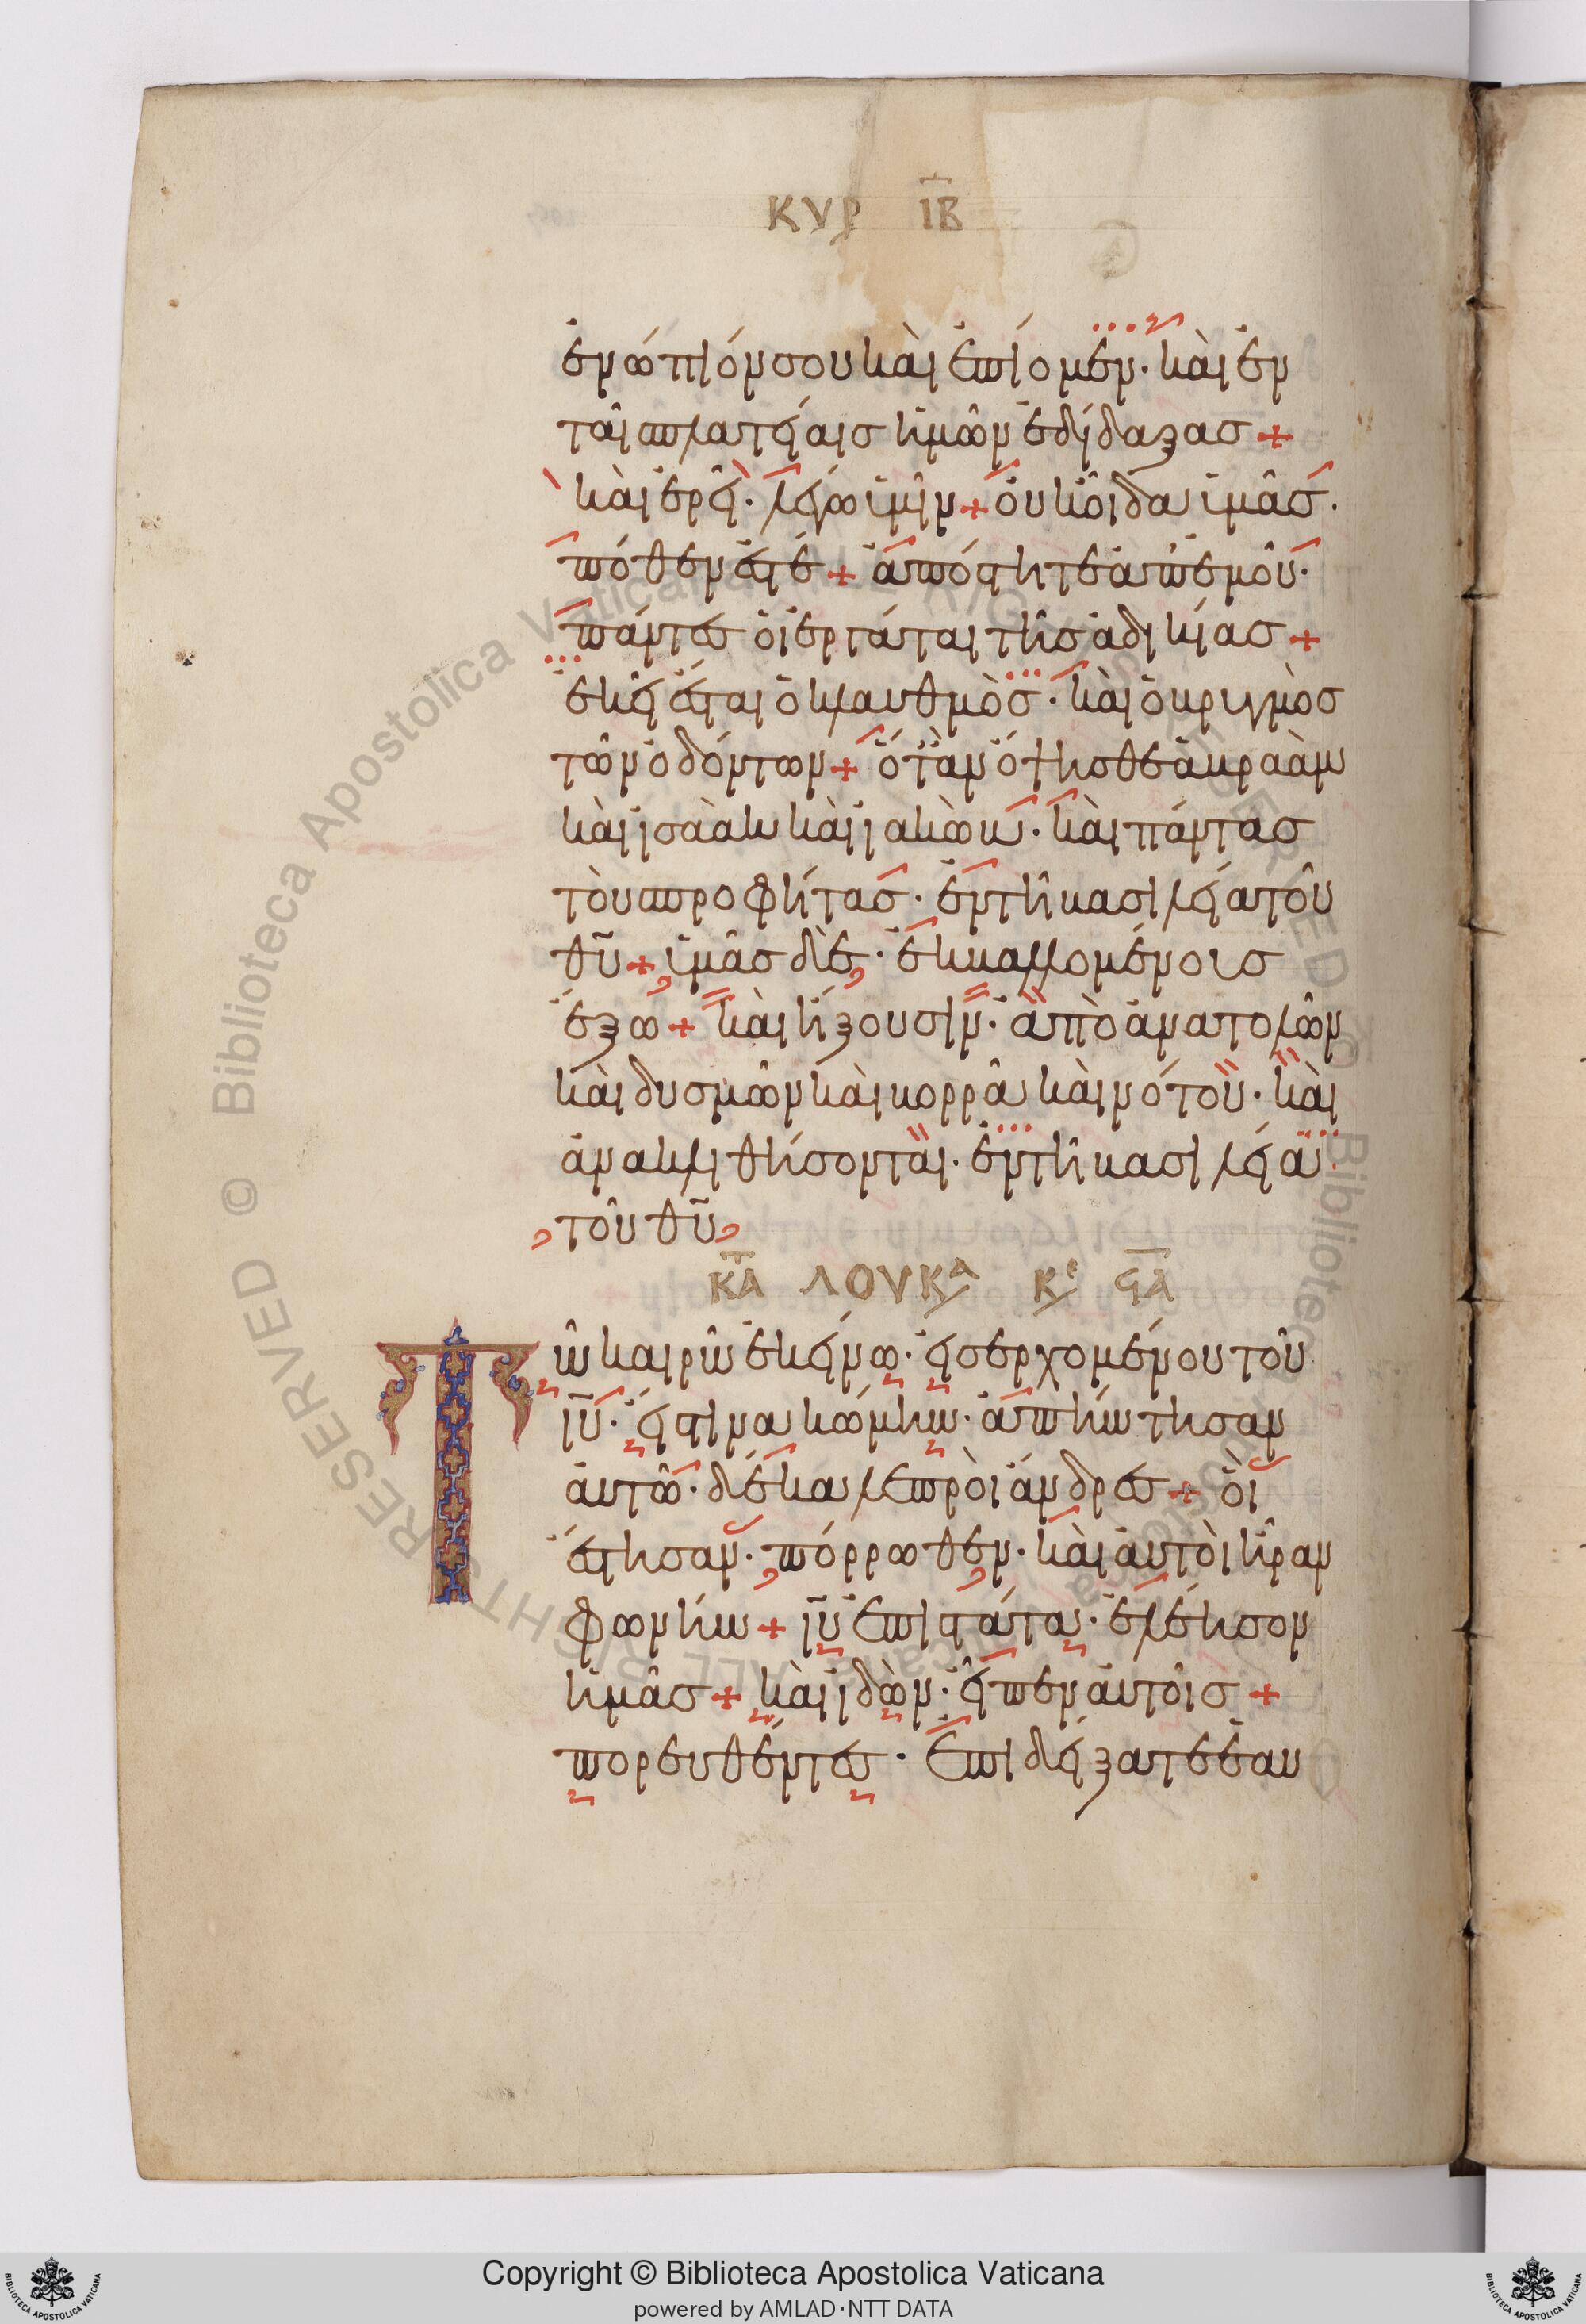 ΚΥΡ ΙΒ
ἐνώπιόν σου καὶ ἐπίομεν· καὶ ἐν
ταῖς πλατείαις ἡμῶν ἐδίδαξας +
καὶ ἐρεῖ· λέγω ὑμῖν + οὐκ οἶδα ὑμᾶς·
πόθεν ἐστέ + ἀπόστητε ἀπ' ἐμοῦ·
πάντες οἱ ἐργάται τῆς ἀδικίας +
ἐκεῖ ἔσται ὁ κλαυθμὸς· καὶ ὁ βρυγμὸς
τῶν ὀδόντων + ὅταν ὄψησθε ἀβραὰμ
καὶ ἰσαὰκ καὶ ἰακὼβ· καὶ πάντας
τοὺς προφήτας· ἐν τῆ βασιλεία τοῦ
θῦ + ὑμᾶς δὲ· ἐκβαλλομένους
ἔξω + καὶ ἥξουσιν· ἀπὸ ἀνατολῶν
καὶ δυσμῶν καὶ βορρᾶ καὶ νότου· καὶ
ἀνακλιθήσονται· ἐν τῆ βασιλεία
τοῦ θῦ
ΚΑΤΑ ΛΟΥΚᾶ Κε ϚΑ
Τῶ καιρῶ ἐκείνω· εἰσερχομένου τοῦ
ἰῦ· εἴς τινα κώμην· ἀπήντησαν
αὐτῶ· δέκα λεπροὶ ἄνδρες + οἳ
ἔστησαν· πόρρωθεν· καὶ αὐτοὶ ἦραν
φωνήν + ἰῦ ἐπιστάτα· ἐλέησον
ἡμᾶς + καὶ ἰδὼν· εἶπεν αὐτοῖς +
πορευθέντες· ἐπιδείξατε ἑαυ
Copyright © Biblioteca Apostolica Vaticana
powered by AMLAD·NTT DATA